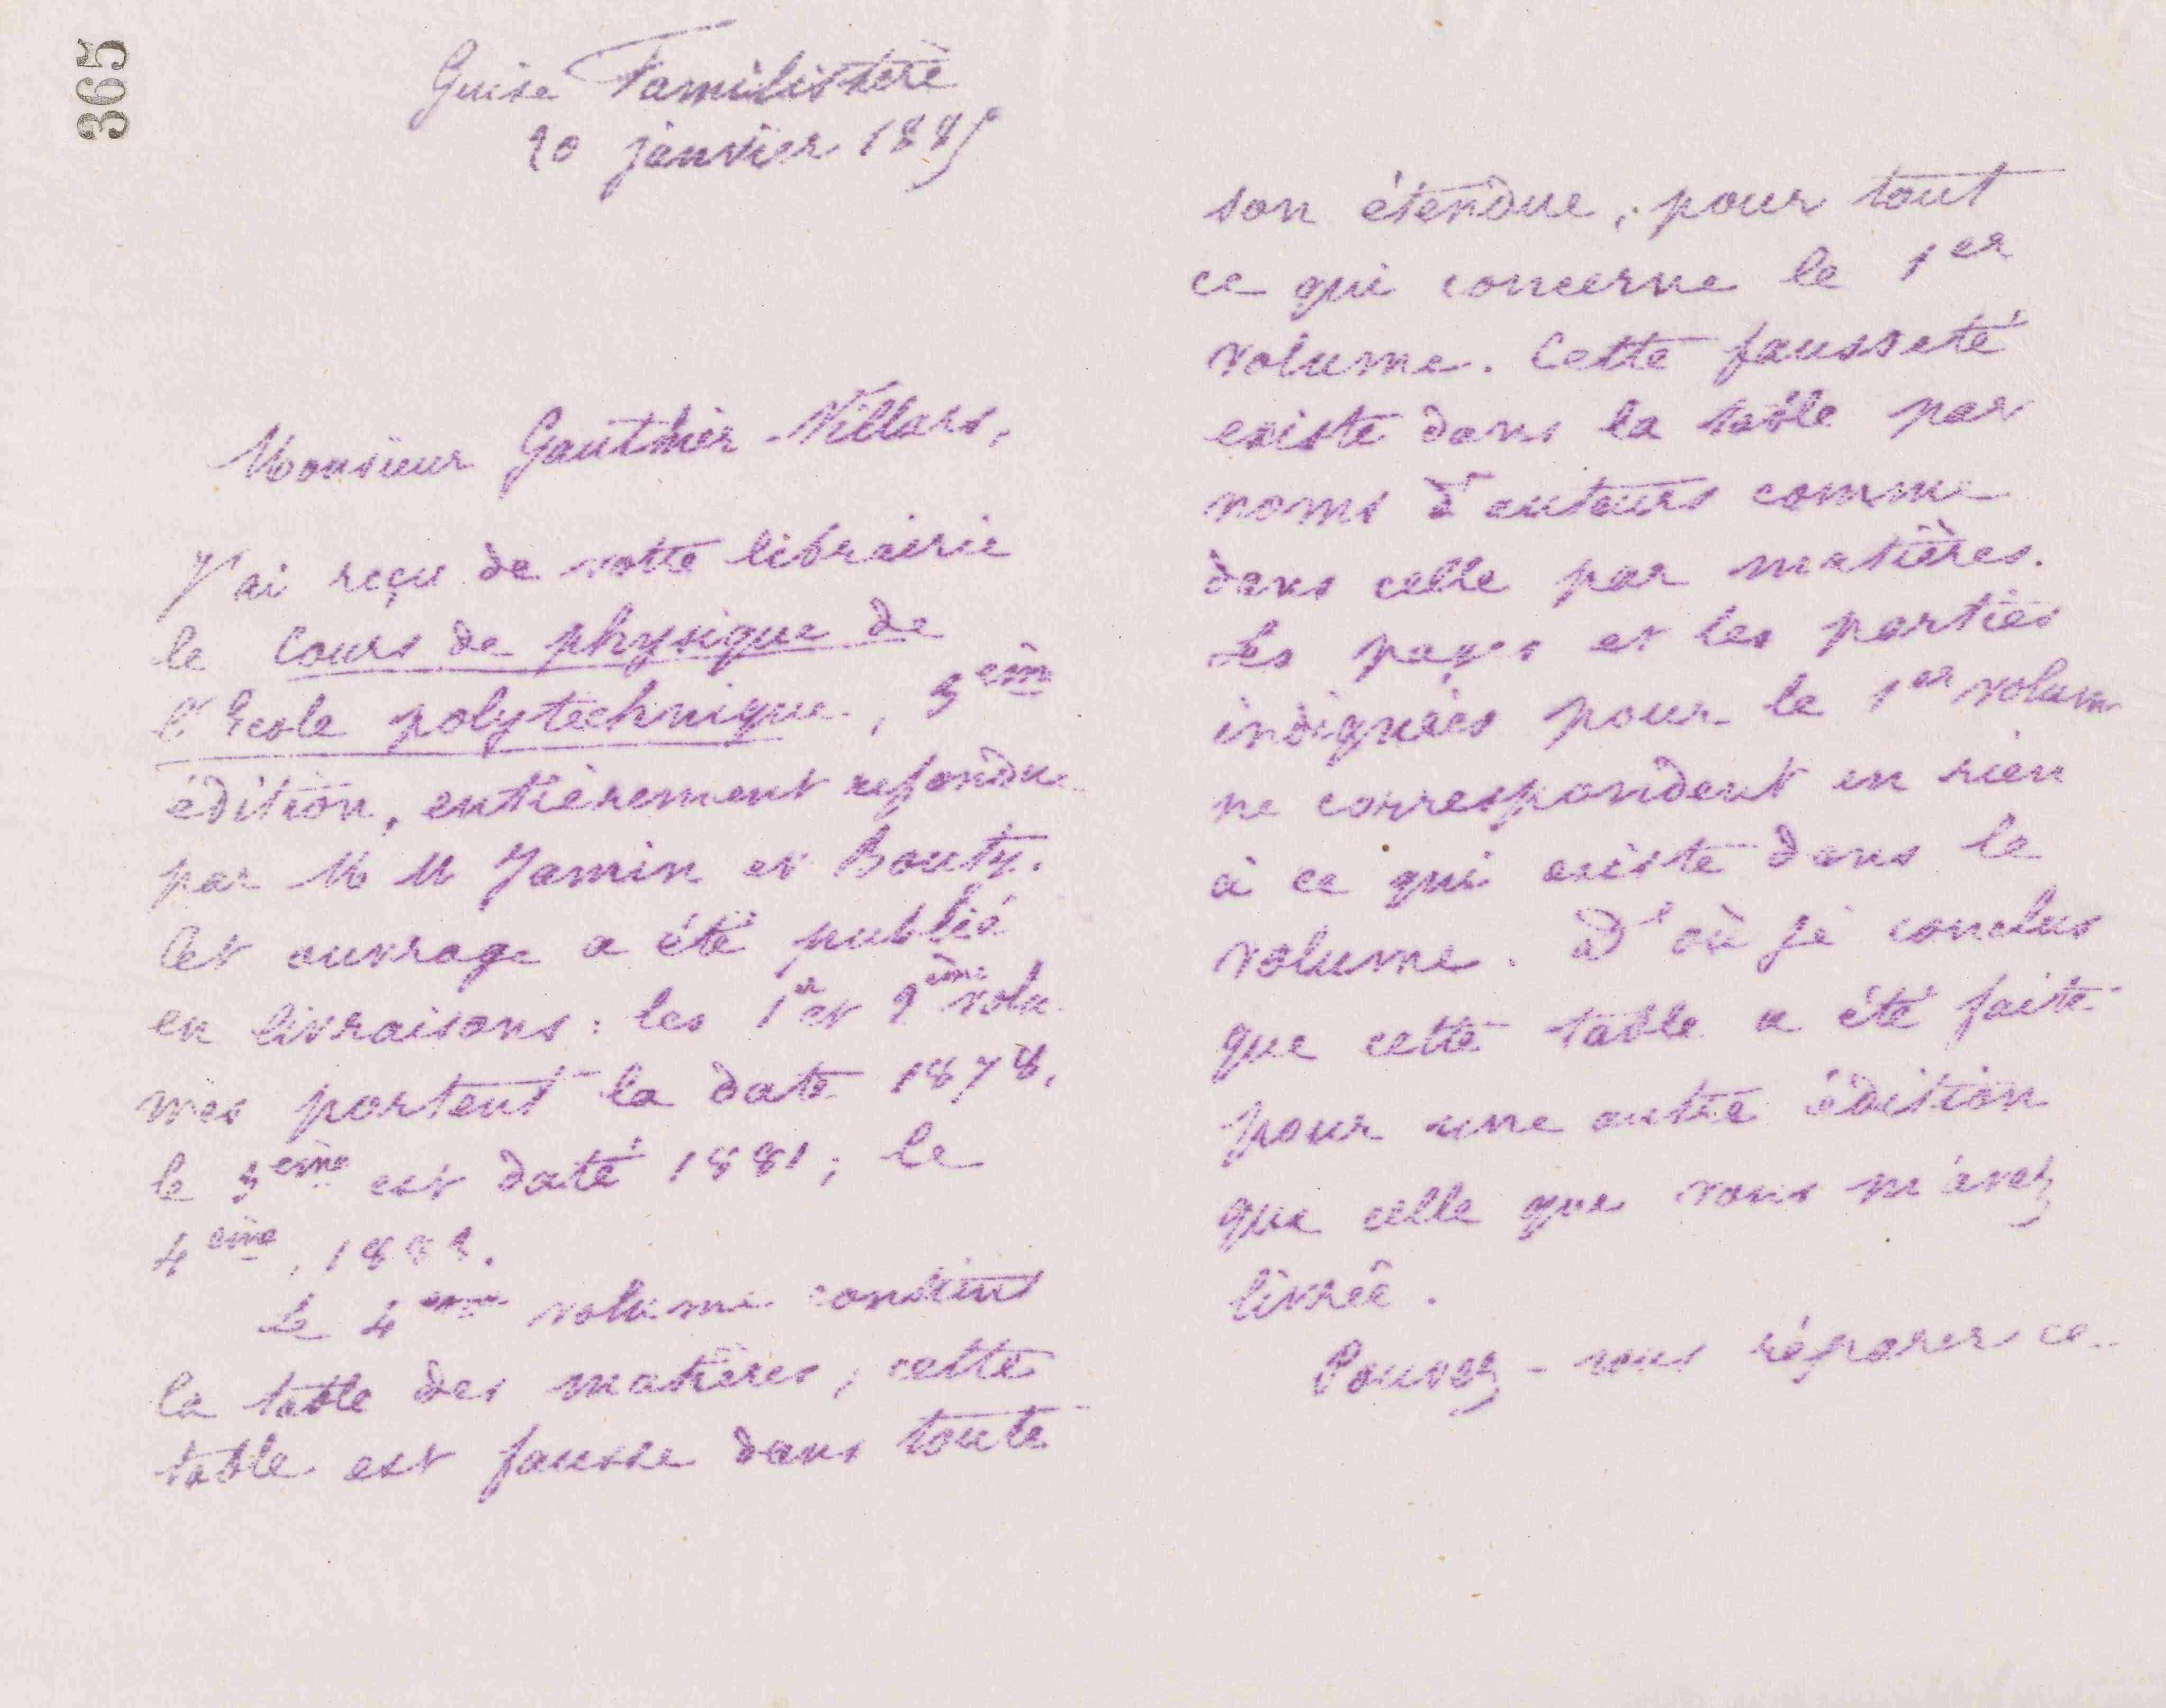 365
Guise Familistère
20 janvier 1885
Monsieur Gauthier-Villars,
J'ai reçu de votre librairie
le Cours de physique de
l'Ecole polytechnique, 3ème
édition, entièrement refondue
par M M Jamin et Bouty.
Cet ouvrage a été publié
en livraisons : les 1er et 2ème volu
mes portent la date 1878,
le 3ème est daté 1881; le
4ème, 1883.
Le 4ème volume contient
la table des matières, cette
table est fausse dans toute
son étendue, pour tout
ce qui concerne le 1er
volume. Cette fausseté
existe dans la table par
noms d'auteurs comme
dans celle par matières.
Les pages et les parties
indiquées pour le 1er volume
ne correspondent en rien
à ce qui existe dans le
volume. D'où je conclus
que cette table a été faite
pour une autre édition
que celle que vous m'avez
livrée.
Pouvez-vous réparer ce